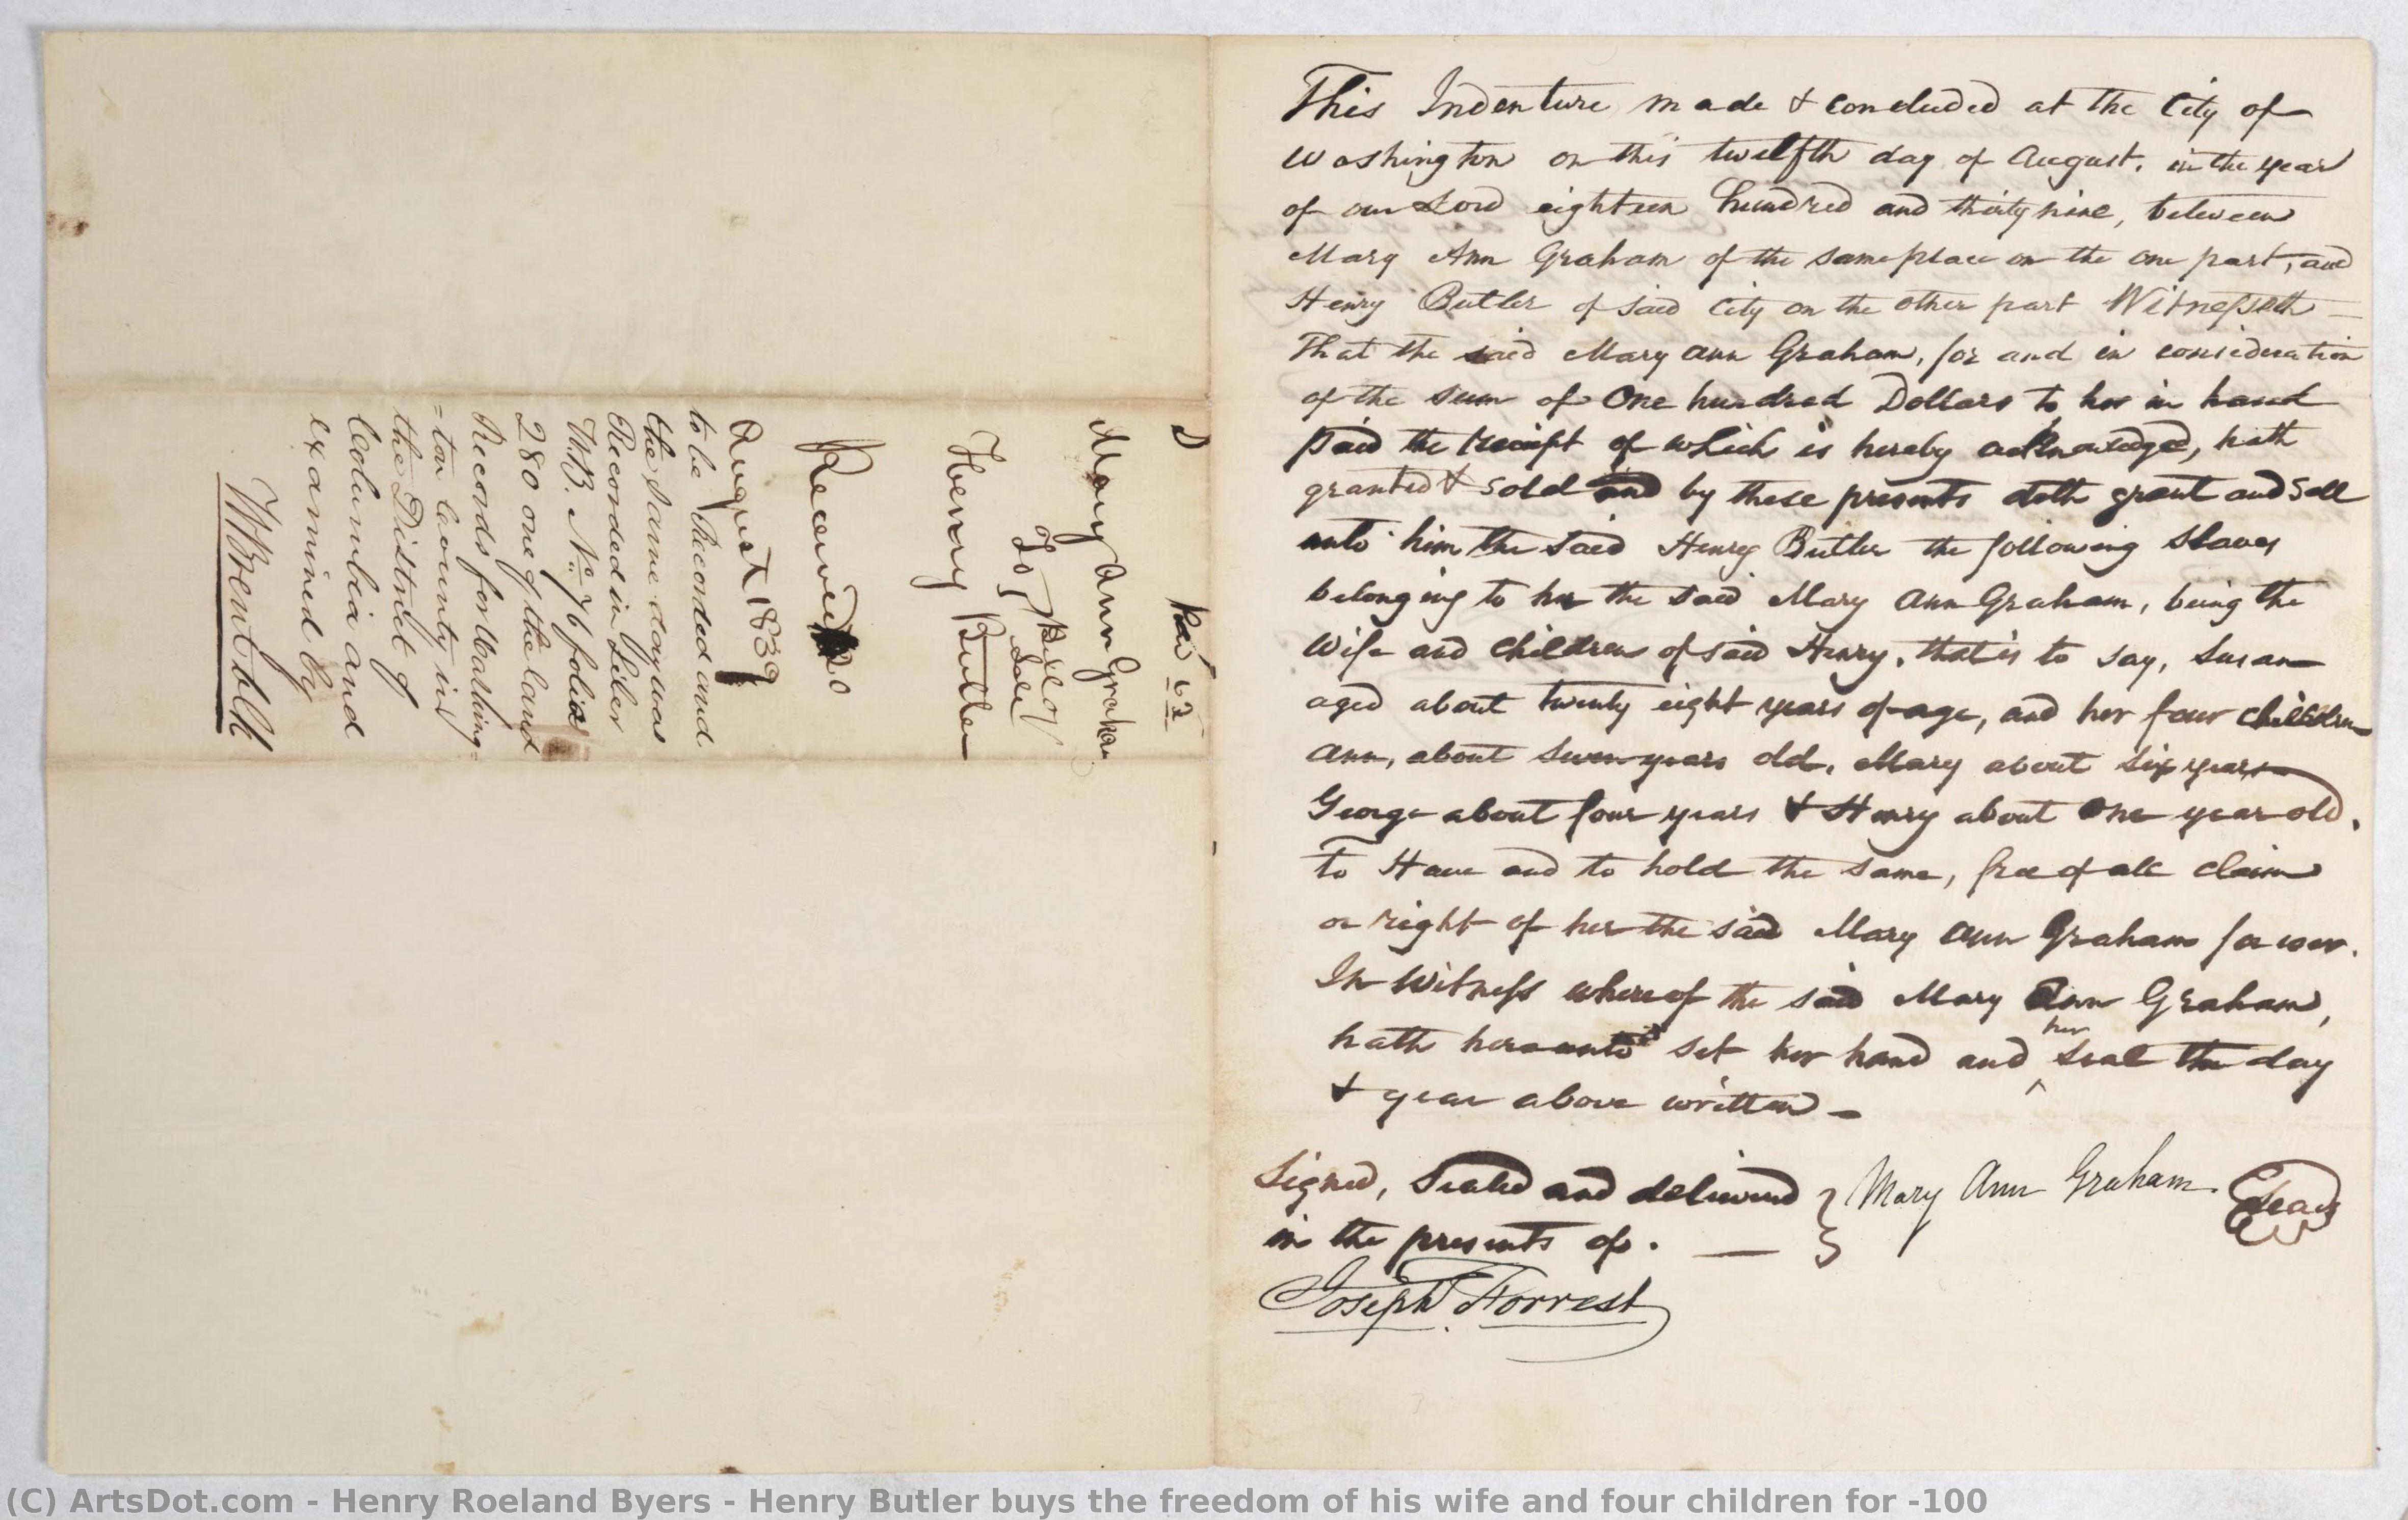 D
Rec
Mary Ann Graham
To } Bill of
Sale
Henry Butler
Received 20
August 1839
to be Recorded and
the same day was
Recorded in Liber
W.B. No. 76 folio
280 one of the land
Records for Washing-
=ton County in
the District of
Columbia and
examined by
W Brent Clk
This Indenture made & concluded at the City of
Washington on this twelfth day of August, in the year
of our Lord eighteen hundred and thirty nine, between
Mary Ann Graham of the same place on the one part, and
Henry Butler of said City on the other part Witnesseth —
That the said Mary Ann Graham, for and in consideration
of the sum of One hundred Dollars to her in hand
paid the receipt of which is hereby acknowledged, hath
granted & sold and by these presents doth grant and sell
unto him the said Henry Butler the following slaves
belonging to her the said Mary Ann Graham, being the
wife and children of said Henry, that is to say, Susan
aged about twenty eight years of age, and her four children
Ann, about seven years old, Mary about six years
George about four years & Henry about one year old.
To Have and to hold the same, free of all claim
or right of her the said Mary Ann Graham for ever.
In Witness whereof the said Mary Ann Graham,
hath hereunto set her hand and her seal the day
& year above written —
Signed, Sealed and delivered } Mary Ann Graham Seal
in the presents of. —
Joseph Forrest
(C) ArtsDot.com - Henry Roeland Byers - Henry Butler buys the freedom of his wife and four children for -100